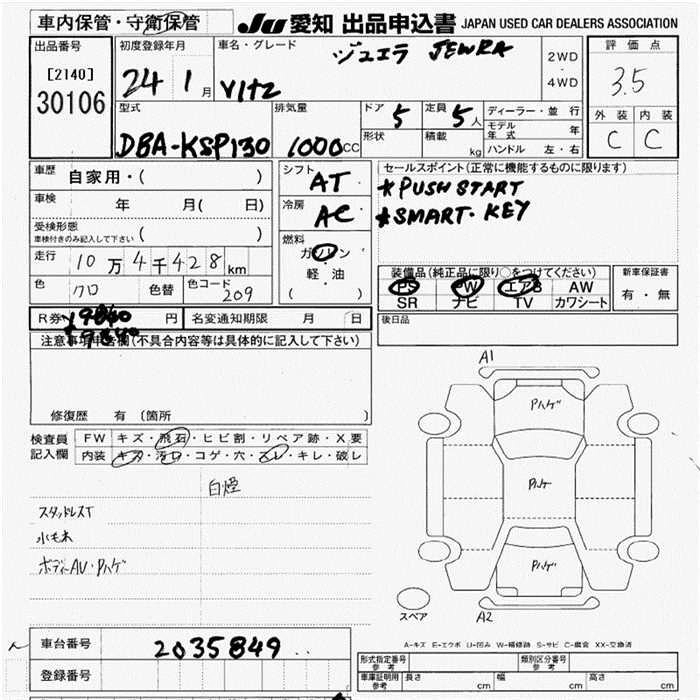 車内保管・守衛保管
JU 愛知 出品申込書 JAPAN USED CAR DEALERS ASSOCIATION
出品番号
[2140]
30106
初度登録年月
24 1月
車名・グレード
ジュエラ JEWRA
Vitz
2WD
・
4WD
評価点
3.5
外装 内装
C C
型式
DBA-KSP130
排気量
1000cc
ドア
5
定員
5人
形状
積載
kg
ディーラー・並行
モデル年式 年
ハンドル 左・右
車歴
自家用・( )
車検
年 月( 日)
受検形態
車検付きのみ記入して下さい ( )
走行
10万4千428km
色
クロ
色替
色コード
209
シフト
AT
冷房
AC
燃料
ガソリン
・
軽油
( )
セールスポイント(正常に機能するものに限ります)
*PUSH START
*SMART・KEY
装備品(純正品に限り○をつけてください)
PS PW エアB AW
SR ナビ TV カワシート
新車保証書
有・無
R券 ¥9840 円
名変通知期限 月 日
後日品
¥9840
注意事項申告欄(不具合内容等は具体的に記入して下さい)
修復歴 有(箇所 )
検査員
記入欄
FW キズ・飛石・ヒビ割・リペア跡・X要
内装 キズ・汚れ・コゲ・穴・スレ・キレ・破レ
白煙
スタッドレスT
水モ木
ボディーAU・Pハゲ
A1
Pハゲ
Pハゲ
Pハゲ
スペア
A2
A-キズ E-エクボ U-凹み W-補修跡 S-サビ C-腐食 XX-交換済
車台番号
2035849
登録番号
形式指定番号
参考
類別区分番号
参考
車庫証明用
参考
長さ cm
幅 cm
高さ cm